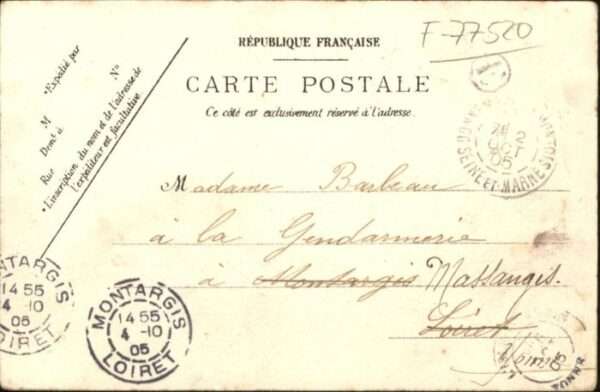 F-77520
RÉPUBLIQUE FRANÇAISE
CARTE POSTALE
Ce côté est exclusivement réservé à l'adresse.
Expédié par
M N°
Dem! à
Rue
L'inscription du nom et de l'adresse de
l'expéditeur est facultative.
SEINE-ET-MARNE
2
OCT
05
Madame Barbeau
à la Gendarmerie
à Montargis Massangis.
Loiret
Yonne
MONTARGIS
14 55
4 -10
05
LOIRET
MONTARGIS
14 55
4 -10
05
LOIRET